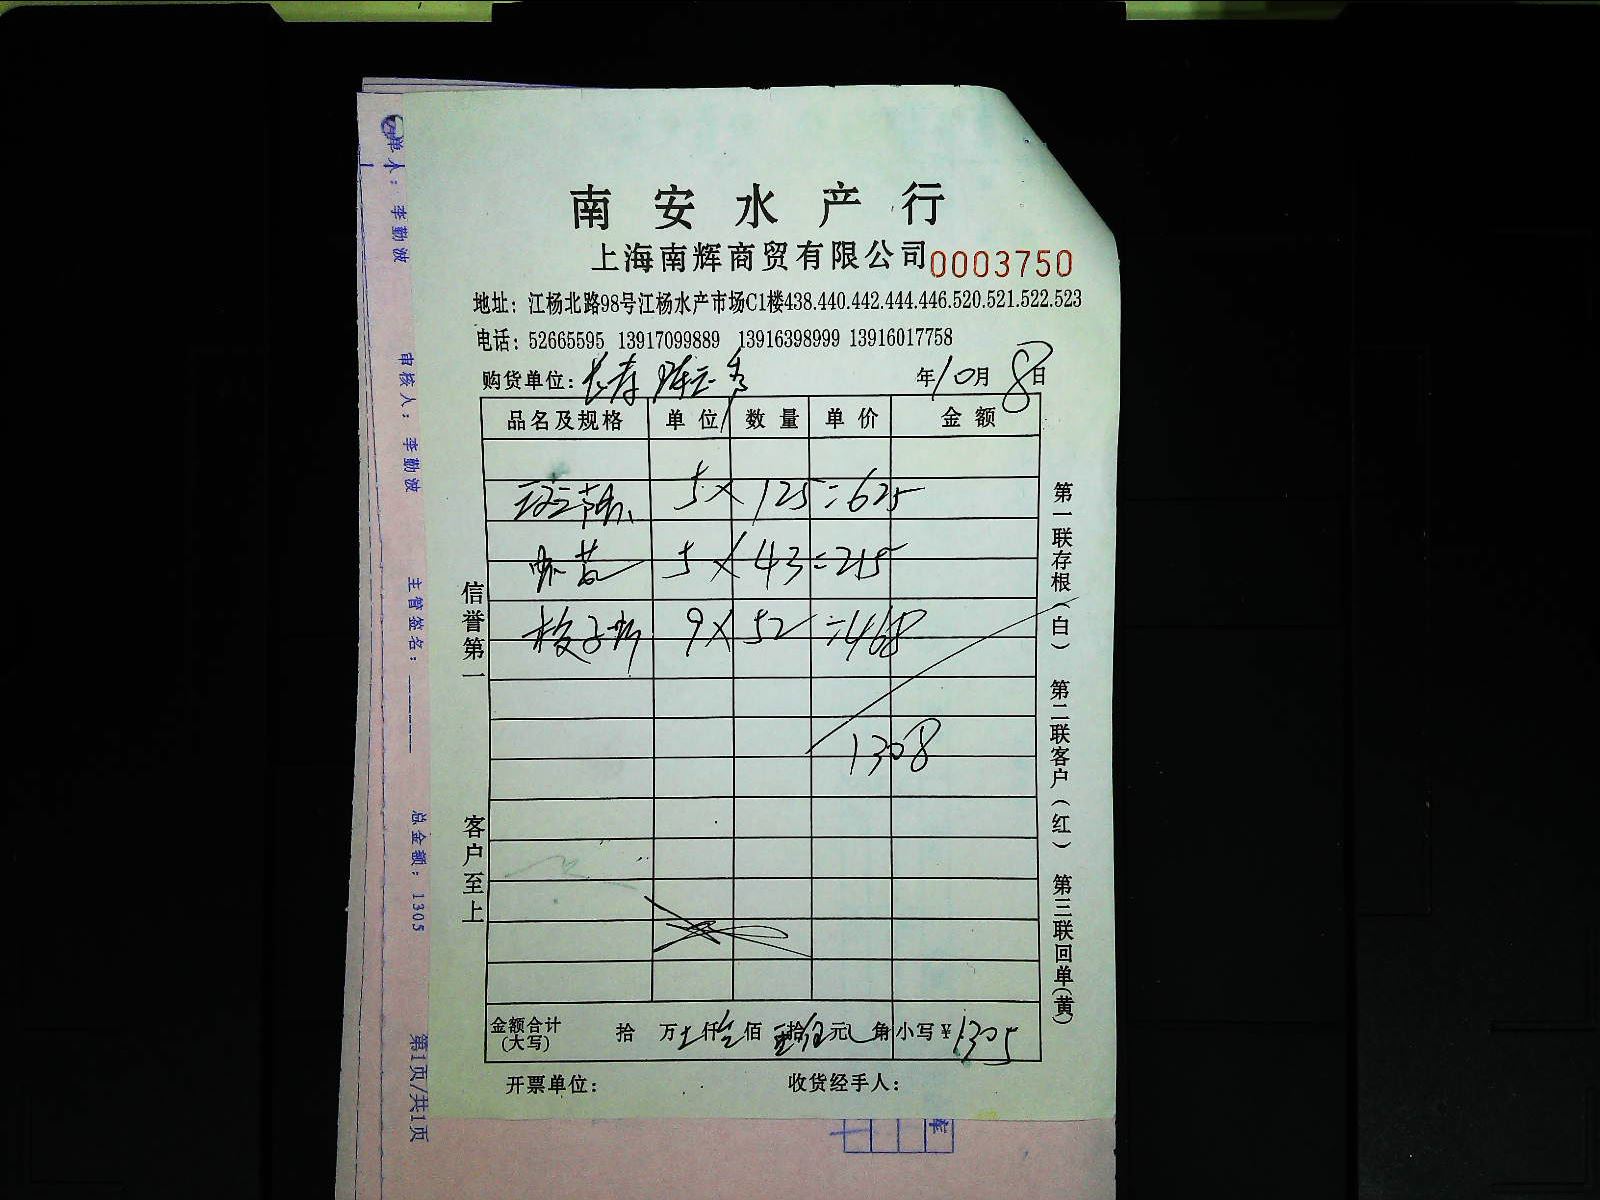 南安水产行
上海南辉商贸有限公司 0003750
地址：江杨北路98号江杨水产市场C1楼438.440.442.444.446.520.521.522.523
电话：52665595 13917099889 13916398999 13916017758
购货单位： 年10月8日
品名及规格 单位 数量 单价 金额
5×125=625
5×43=215
9×52=468
1308
金额合计(大写) 拾 万 仟 佰 拾 元 角 小写¥1305
开票单位： 收货经手人：
信誉第一 客户至上
第一联存根(白) 第二联客户(红) 第三联回单(黄)
单人：李勤波 审核人：李勤波 主管签名：_______ 总金额：1305 第1页/共1页